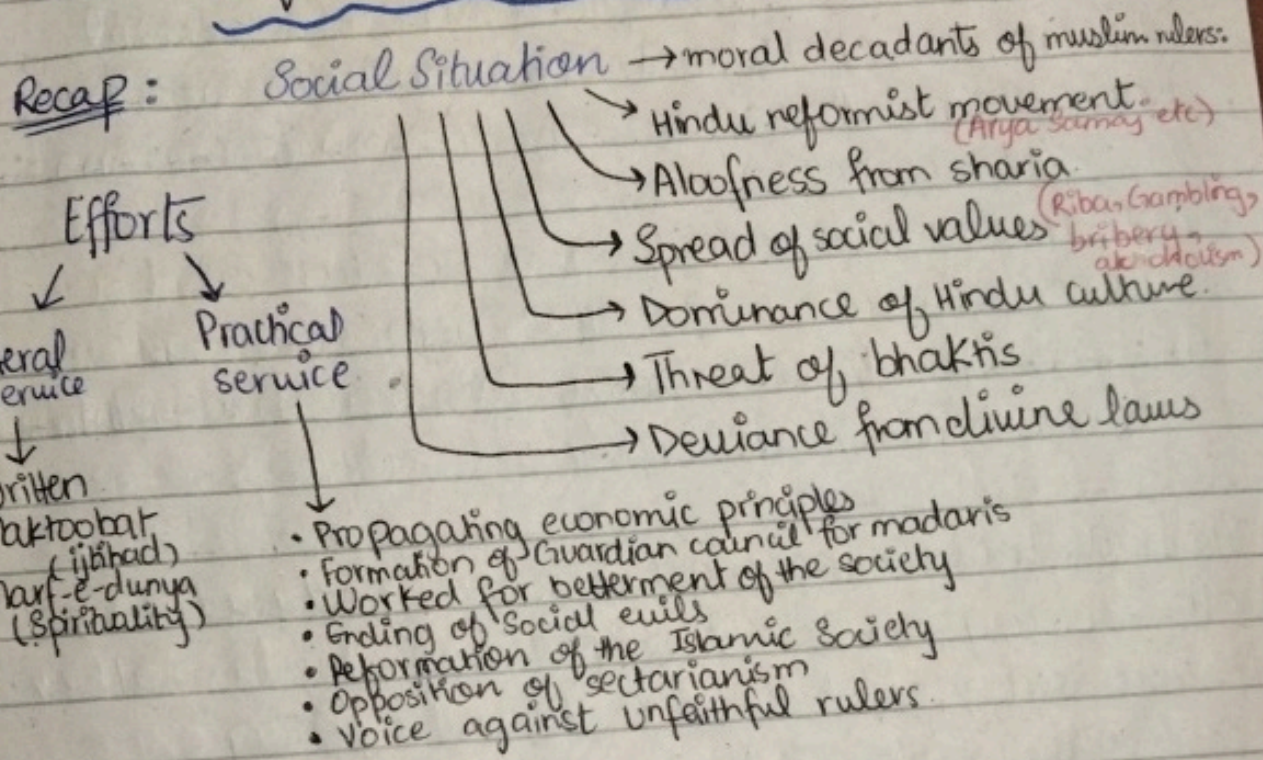 Recap: Social Situation → moral decadants of muslim rulers.
→ Hindu reformist movement.
(Arya Samaj etc)
→ Aloofness from sharia.
→ Spread of social values (Riba, Gambling,
bribery,
→ Dominance of Hindu culture.
→ Threat of bhaktis
→ Deviance from divine laws
Efforts
eral
ervice
Practical
service
ritten
aktoobat
(ijtihad)
arf-e-dunya
(Spirituality)
• Propagating economic principles
• Formation of Guardian council for madaris
• Worked for betterment of the society
• Ending of social evils
• Reformation of the Islamic Society
• Opposition of sectarianism
• Voice against unfaithful rulers.